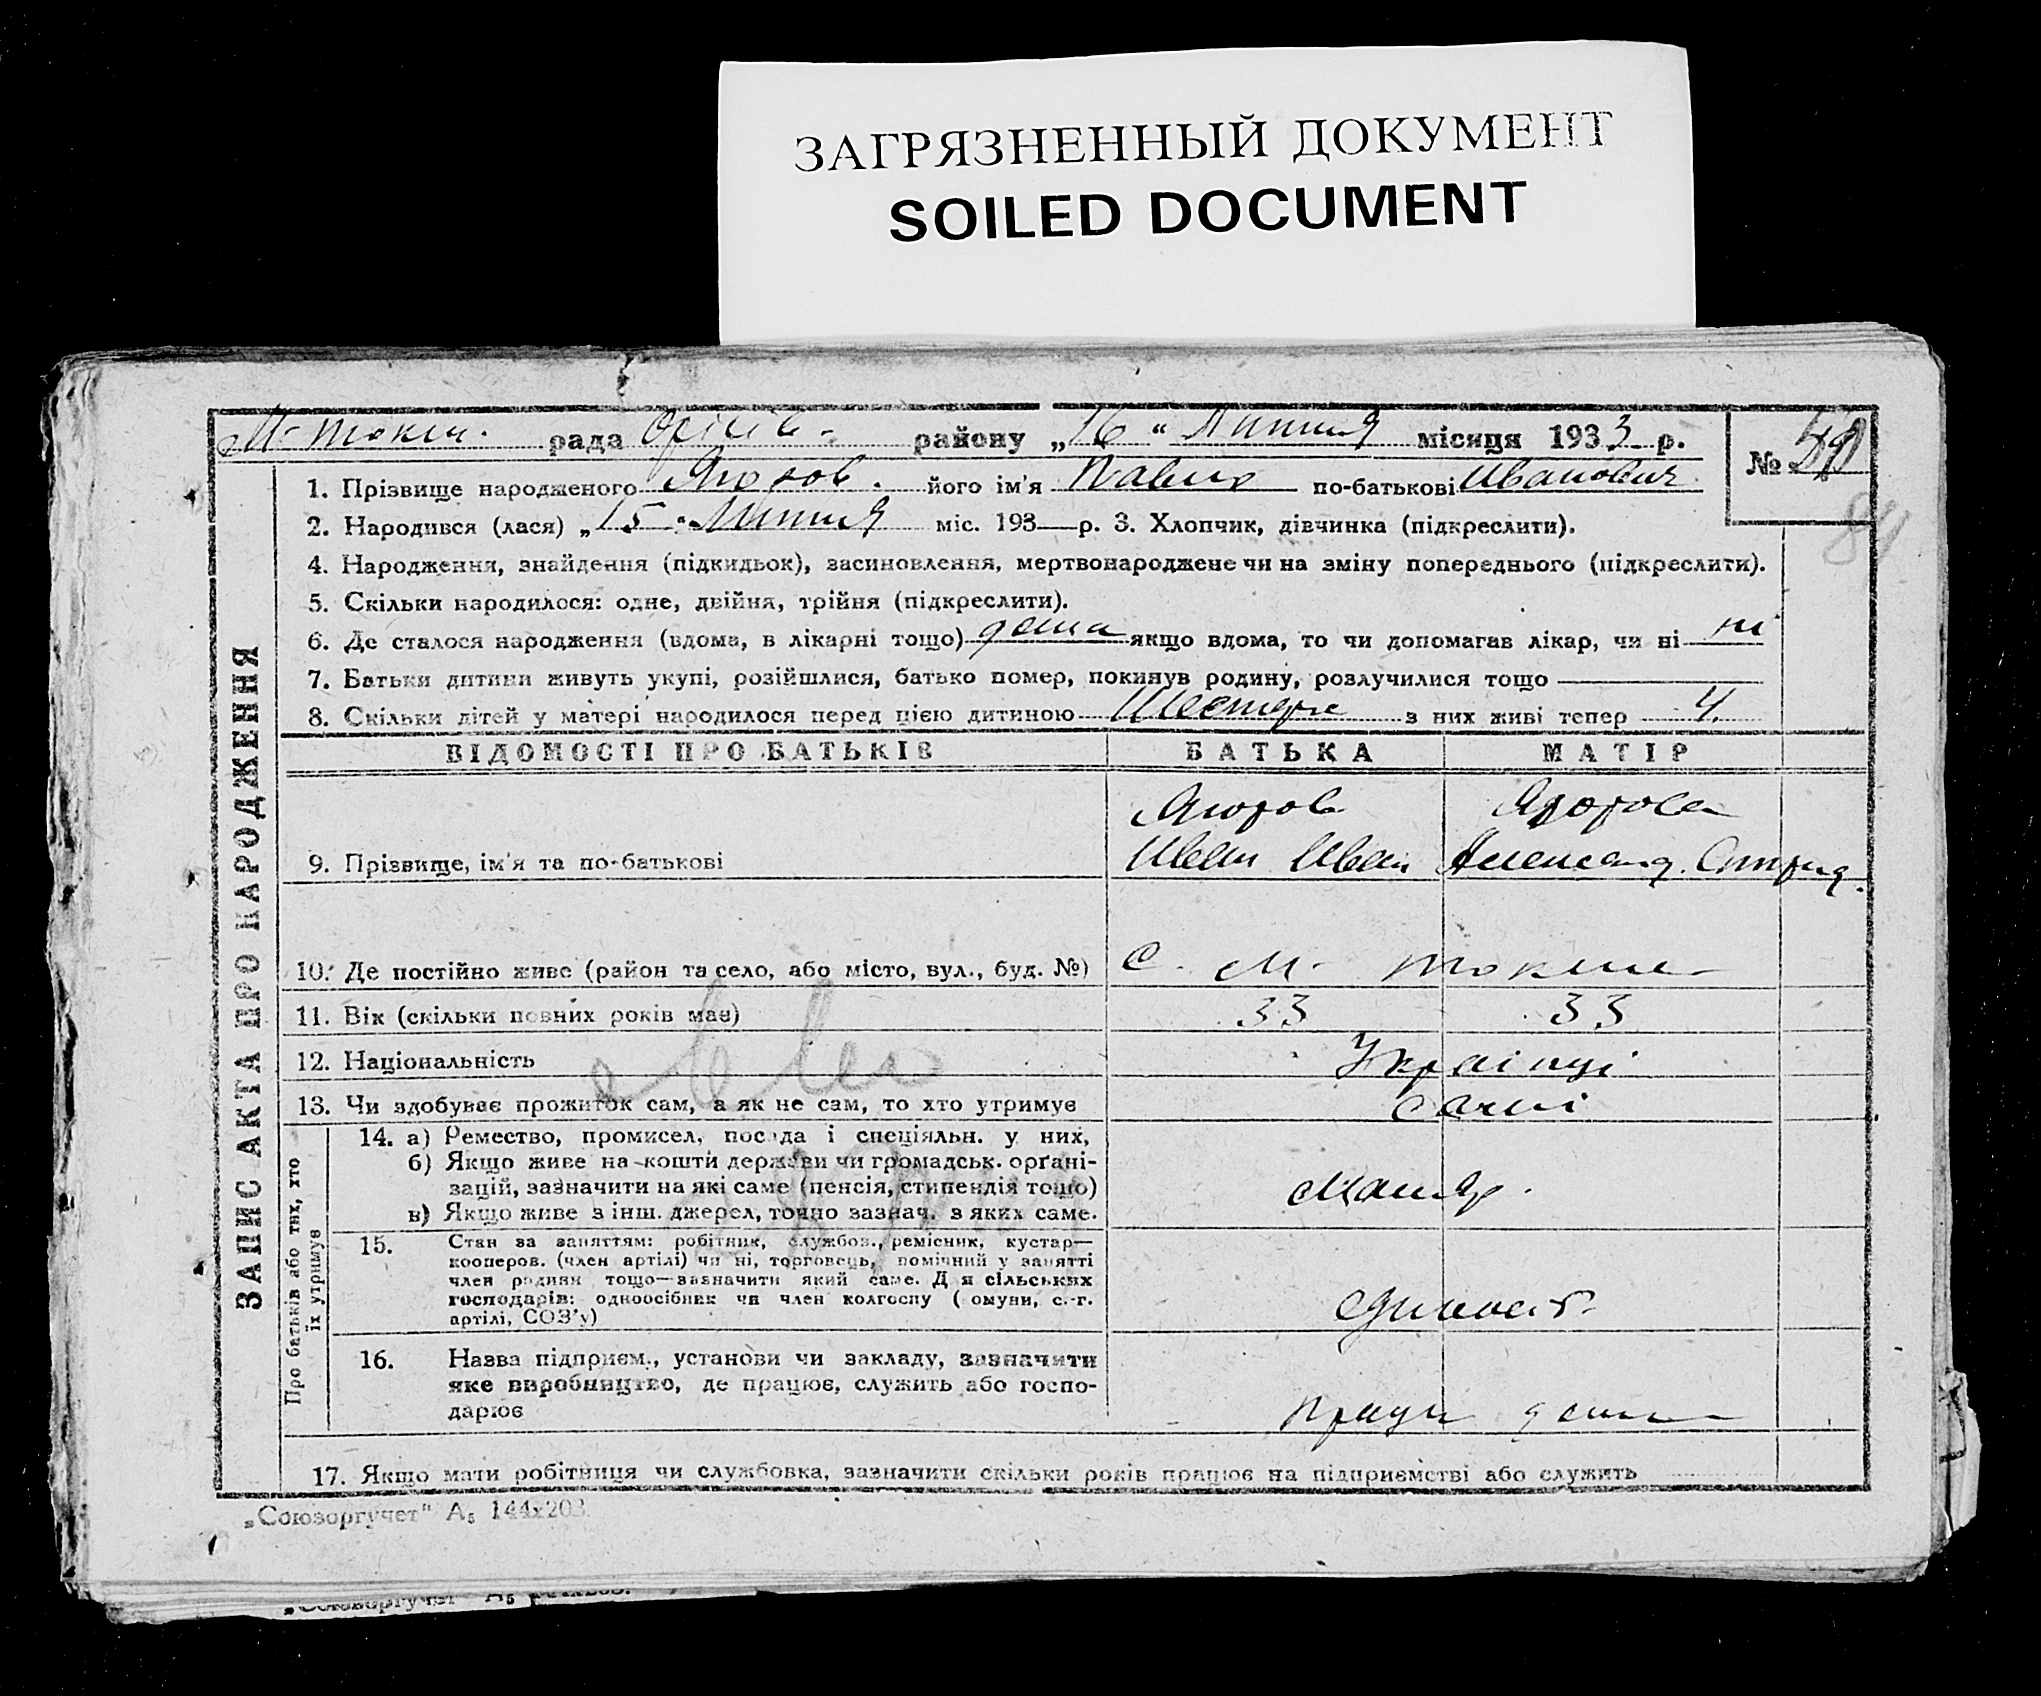 ЗАГРЯЗНЕННЫЙ ДОКУМЕНТ
SOILED DOCUMENT
М-Токм. рада Оріхів- району „16“ Липня місяця 1933 р.
№
84
ЗАПИС АКТА ПРО НАРОДЖЕННЯ
1. Прізвище народженого його ім'я Павло по-батькові Иванович
2. Народився (лася) „15“ Липня міс. 193—р. 3. Хлопчик, дівчинка (підкреслити).
4. Народження, знайдення (підкидьок), засиновлення, мертвонароджене чи на зміну попереднього (підкреслити).
5. Скільки народилося: одне, двійня, трійня (підкреслити).
6. Де сталося народження (вдома, в лікарні тощо) дома якщо вдома, то чи допомагав лікар, чи ні ні
7. Батьки дитини живуть укупі, розійшлися, батько помер, покинув родину, розлучилися тощо
8. Скільки дітей у матері народилося перед цією дитиною Шестеро з них живі тепер 4.
ВІДОМОСТІ ПРО БАТЬКІВ БАТЬКА МАТІР
9. Прізвище, ім'я та по-батькові Иван Иван Александ.
10. Де постійно живе (район та село, або місто, вул., буд. №) с. М-
11. Вік (скільки повних років має) 33 33
12. Національність Українці
13. Чи здобуває прожиток сам, а як не сам, то хто утримує самі
Про батьків або тих, хто їх утримує
14. а) Ремество, промисел, посада і спеціяльн. у них,
б) Якщо живе на кошти держави чи громадськ. орґані-
зацій, зазначити на які саме (пенсія, стипендія тощо)
в) Якщо живе з інш. джерел, точно зазнач. з яких саме.
Маляр.
15. Стан за заняттям: робітник, службов., ремісник, кустар—
кооперов. (член артілі) чи ні, торговець, помічний у занятті
член родини тощо—зазначити який саме. Д я сільських
господарів: одноосібник чи член колгоспу ( омуни, с.-г.
артілі, СОЗ'у)
16. Назва підприєм., установи чи закладу, зазначити
яке виробництво, де працює, служить або госпо-
дарює
дома
17. Якщо мати робітниця чи службовка, зазначити скільки років працює на підприємстві або служить
„Союзоргучет“ А₅ 144х203.
„Союзоргучет“ А₅